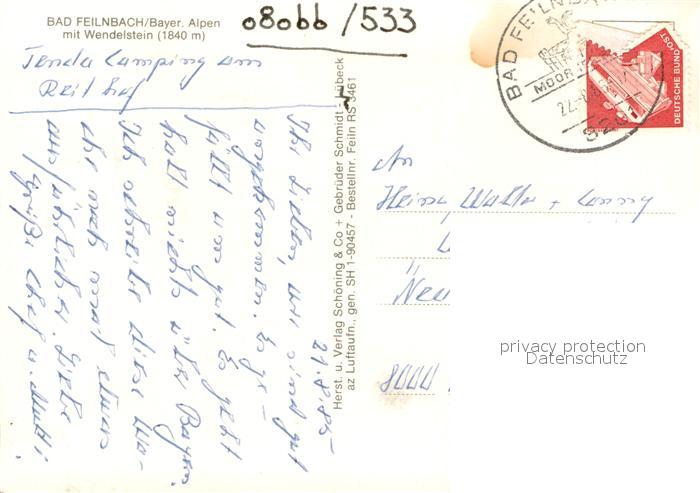 BAD FEILNBACH/Bayer. Alpen
mit Wendelstein (1840 m)
08066 / 533
Tenda Camping am
Reithof
21.8.85
Ihr Lieben, wir sind gut
angekommen. Es ge-
fällt uns gut. Es geht
halt nichts über Bayern.
Ich schreibe diese Wo-
che noch mal etwas
ausführlicher. Liebe
Grüße
Herst. u. Verlag Schöning & Co + Gebrüder Schmidt · Lübeck
az Luftaufn., gen. SH 1-90457 - Bestellnr. Feiln RS 3461
BAD FEILNBA
MOOR
22.-8
820
DEUTSCHE BUNDESPOST
An
Heinz, Walter + Conny
8000
privacy protection
Datenschutz